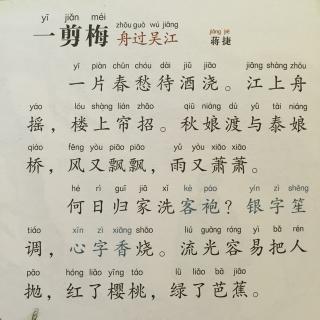 yī jiǎn méi zhōu guò wú jiāng jiǎng jié
一剪梅 舟过吴江 蒋捷
yī piàn chūn chóu dài jiǔ jiāo jiāng shàng zhōu
一片春愁待酒浇。江上舟
yáo lóu shàng lián zhāo qiū niáng dù yǔ tài niáng
摇，楼上帘招。秋娘渡与泰娘
qiáo fēng yòu piāo piāo yǔ yòu xiāo xiāo
桥，风又飘飘，雨又萧萧。
hé rì guī jiā xǐ kè páo yín zì shēng
何日归家洗客袍？银字笙
tiáo xīn zì xiāng shāo liú guāng róng yì bǎ rén
调，心字香烧。流光容易把人
pāo hóng liǎo yīng táo lǜ liǎo bā jiāo
抛，红了樱桃，绿了芭蕉。